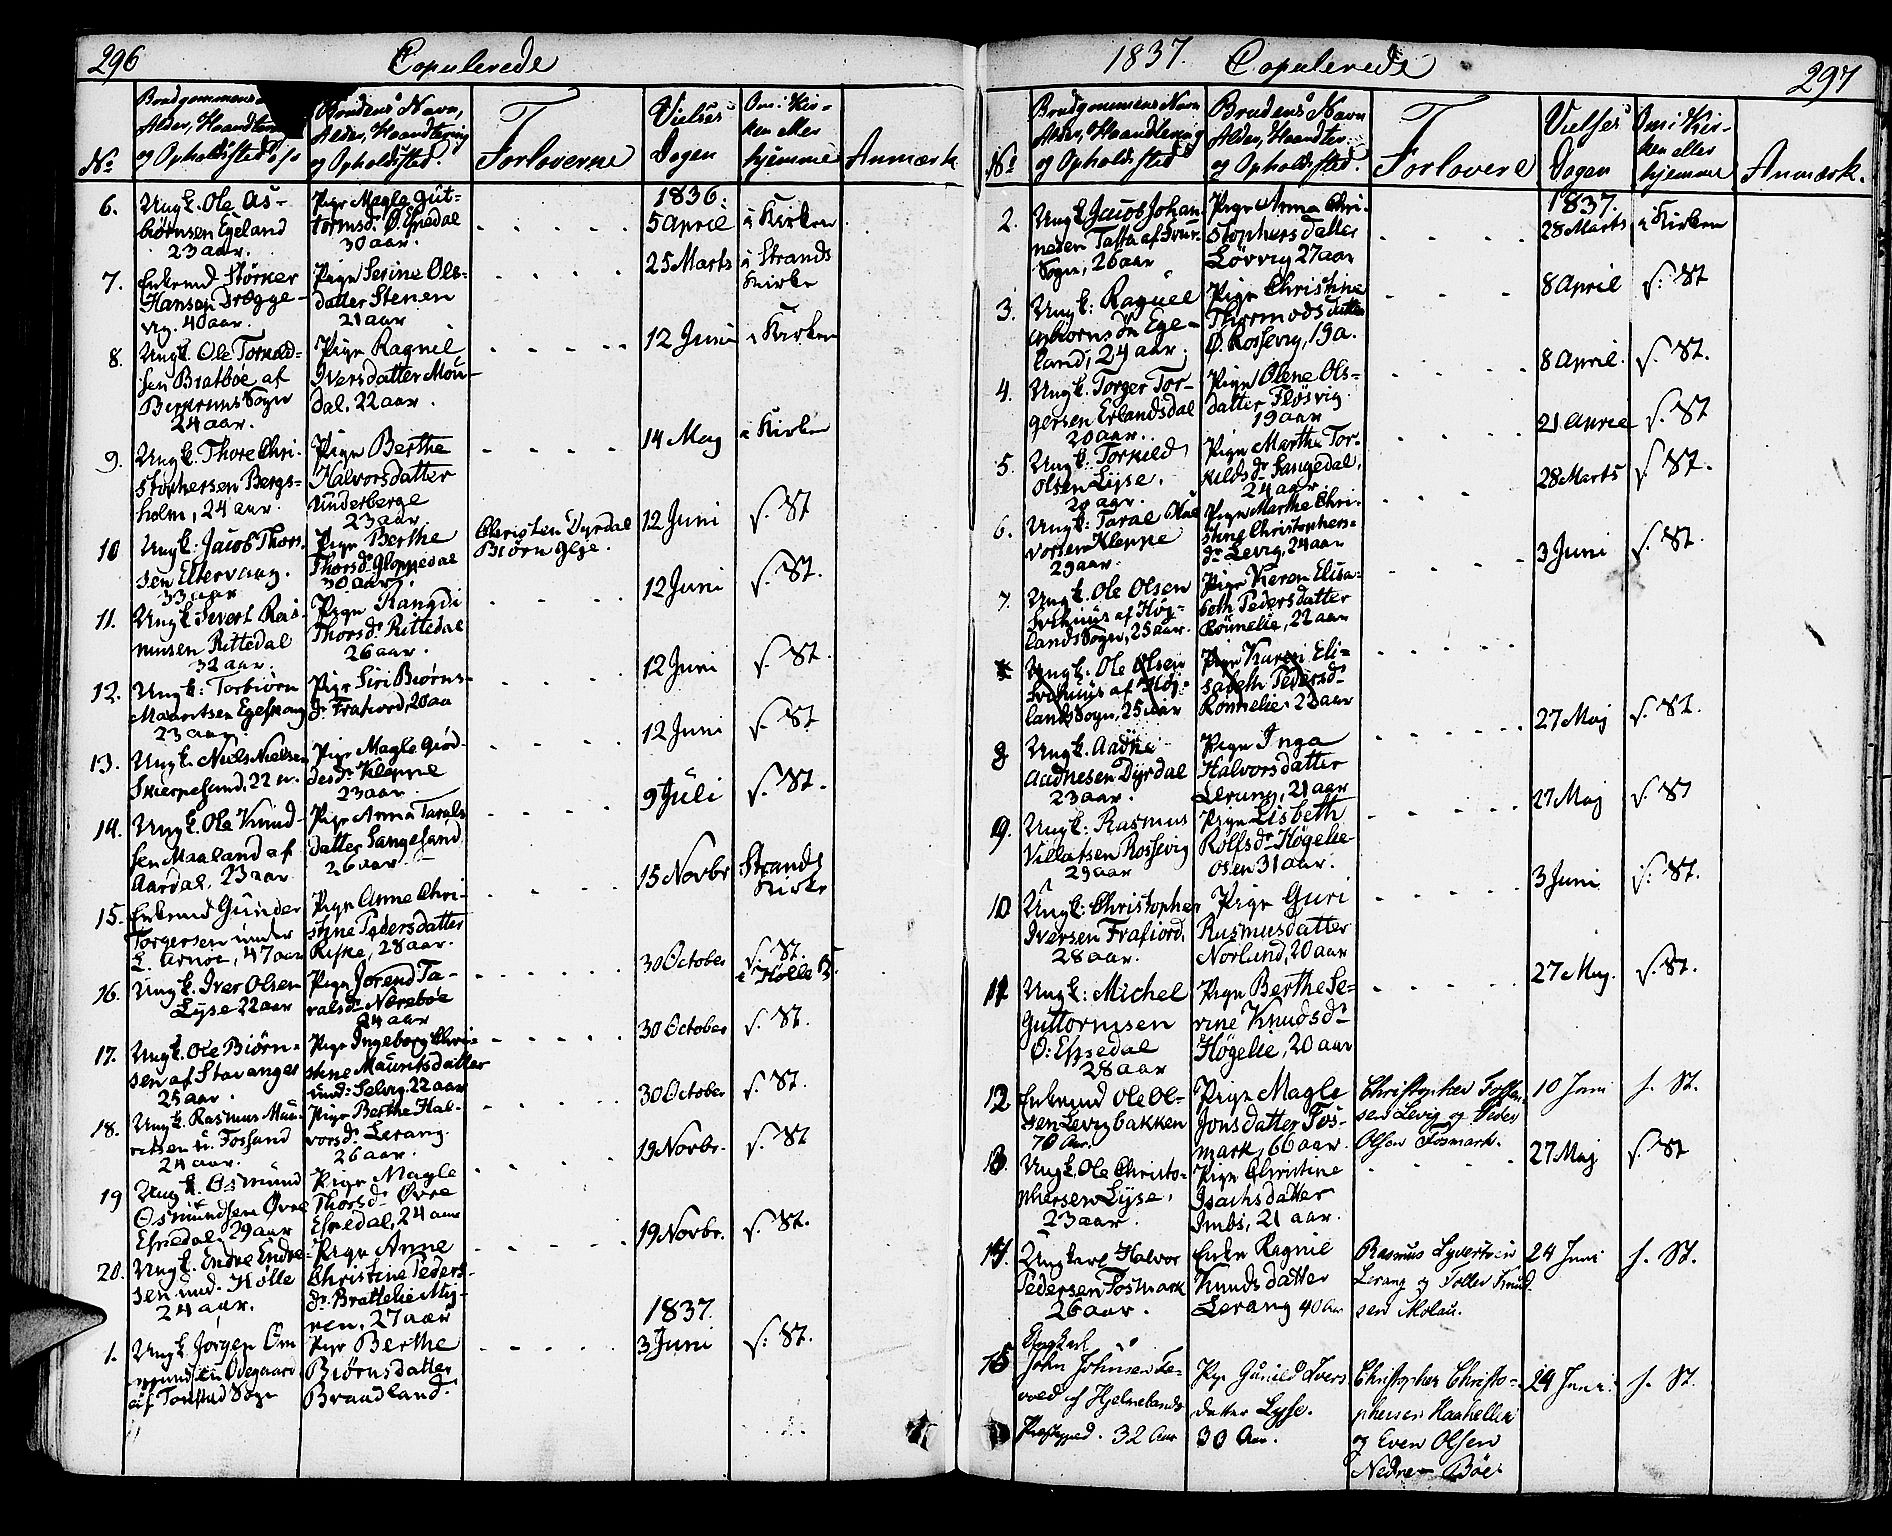 296
Copulerede
Brudgommens
Alder, Haandtering
og Opholdssted
No
Brudens Navn,
Alder, Haandtering
og Opholdsted.
Forloverne
Vielses
Dagen
Om i Kir-
ken eller
hjemme
Anmærk
1836.
6.
Ungk. Ole As-
biørnsen Egeland
23 aar.
Pige Magle Gut-
tormsd. Ø. Espedal
30 aar.
5 April
i Kirken
7.
Enkemd Størker
Hansen Dregge-
vig. 40 aar.
Pige Serine Ols-
datter Stenen
21 aar
25 Marts
i Strands
Kirke
8.
Ungk. Ole Torkild-
sen Bratbøe af
Bierkrems Sogn
24 aar.
Pige Ragnil
Iversdatter Mou-
dal, 22 aar.
12 Juni
i Kirken
9.
Ungk. Thore Chri-
stophersen Bergs-
holm, 24 aar
Pige Berthe
Halvorsdatter
Underberge
23 aar
14 May
i Kirken
10
Ungk: Jacob Thors-
sen Eltervaag.
33 aar
Pige Berthe
Thorsdr Gloppedal
30 aar.
Christen Dyrdal
Biørn Gjije.
12 Juni
s. St
11.
Ungk. Sivert Ras-
musen Rettedal
32 aar.
Pige Rangdi
Thorsdr Rettedal
26 aar.
12 Juni
s. St.
12.
Ungk: Torbiørn
Mauritsen
23 aar
Pige Siri Biørns-
dr Frafiord, 20 aa
12 Juni
s. St.
13.
Ungk. Niels Nielsen
22 a.
Pige Magle Giød-
desdr Kleppe
23 aar.
12 Juni
s. St
14.
Ungk. Ole Knud-
sen Maaland af
Aardal, 23 aar
Pige Anna Tarals
datter Langesand
26 aar
9 Juli
s. St.
15.
Enkemd Gunder
Torgersen under
L. Arnøe, 47 aar
Pige Anne Chri-
stine Pedersdatter
Riske, 28 aar.
15 Novbr
Strands
Kirke
16.
Ungk. Iver Olsen
Lyse 22 aar
Pige Jorend Ta-
ralsdr Nerebøe
24 aar
30 October
s. St.
i Hølle K.
17.
Ungk. Ole Biørn-
sen af Stavanger
25 aar.
Pige Ingeborg Chri-
stine Mauritsdatter
und: Selvig, 22 aar
30 October
s. St.
18.
Ungk. Rasmus Mau-
ritsen u. Fossand
24 aar.
Pige Berthe Hal-
vorsdr Lerang.
26 aar.
30 October
s. St.
19
Ungk. Osmund
Osmundsen Øvre
Espedal 29 aar
Pige Magle
Thorsdr Øvre
Espedal, 24 aar
19 Novbr.
s. St
20.
Ungk. Endre Endre-
sen und. Hølle
24 aar.
Pige Anne
Christine Peders-
dr Brattelie My-
ren, 27 aar
19 Novbr.
s. St.
1837.
1.
Ungk. Jørgen Om
mundsen Ødegaard
af Tonstad Sogn
Pige Berthe
Biørnsdatter
Braadland.
3 Juni
s. St.
1837.
Copulerede
297
No
Brudgommens Navn
Alder, Haandtering
og Opholdssted
Brudens Navn
Alder, Haandter-
og Opholdsted.
Forlovere
Vielses
Dagen
Om i Kir-
ken eller
hjemme
Anmærk.
1837.
2.
Ungk. Jacob Johan
nesen Tasta af Frue-
Sogn, 26 aar
Pige Anna Chri-
stophersdatter
Løvvig 27 aar
28 Marts
i Kirken
3.
Ungk: Raguel
Asbiornsøn Ege-
land, 24 aar.
Pige Christine
Thormodsdatter
Ø. Rossevig, 19 a.
8 April
s. St
4.
Ungk. Torger Tor-
gersen Erlandsdal
20 aar.
Pige Olene Ols-
datter Fløsvig.
19 aar
8 April.
s. St.
5.
Ungk: Torkild
Olsen Lyse.
20 aar.
Pige Marthe Tor-
kildsdr Sangedal,
24 aar.
21 April
s. St
6.
Ungk: Taral Hal
vorsen Kleppe
29 aar.
Pige Marthe Chri-
stine Christophers-
dr Levig, 24 aar
28 Marts
s. St.
7.
Ungk. Ole Olsen
af Høg-
lands Sogn, 25 aar.
Pige Karen Elisa-
beth Pedersdatter
Rønnelie, 22 aar
3 Juni
s. St.
Ungk. Ole Olsen
af Høg-
lands Sogn, 25 aar
Pige Karen Eli-
sabeth Pedersdr
Rønnelie 22 aar
8
Ungk. Aadne
Aadnesen Dyrdal
23 aar.
Pige Inga
Halvorsdatter
Lerang, 21 aar
27 Maj
s. St.
9.
Ungk: Rasmus
Villatsen Rossevig
29 aar
Pige Lisbeth
Rolfsdr Høgelie
osen 31 aar.
27 Maj
s. St
10
Ungk: Christopher
Iversen Frafiord.
28 aar.
Pige Guri
Rasmusdatter
Norland, 20 aar
3 Juni
s. St.
11.
Ungk: Michel
Guttormsen
Ø: Espedal
28 aar
Pige Berthe Se-
rine Knudsdr
Høgelie, 20 aar
27 May.
s. St.
12
Enkemd Ole Ol-
sen Levigbakken
70 Aar.
Pige Magle
Jonsdatter Fos-
mark, 66 aar
Christopher Tolle-
sen Levig og Peder
Olsen Fosmark.
10 Juni
s. St.
13.
Ungk. Ole Christo-
phersen Lyse,
23 aar.
Pige Christine
Isachsdatter
Imbs, 21 aar.
27 Maj
s. St
14.
Ungkarl Halvor
Pedersen Fosmark
26 aar.
Enke Ragnil
Knudsdatter
Lerang 40 Aar
Rasmus Syvertsen
Lerang og Toller Knud
sen Molau.
24 Juni
s. St.
15
Ungkarl
John Johnsen
af Hjelmelands
Præstegjed. 32 Aar
Pige Gunild Ivers
datter Lyse.
30 Aar.
Christopher Christo-
phersen Haaheller
og Even Olsen
Nedre Bøe.
24 Juni.
s. St.